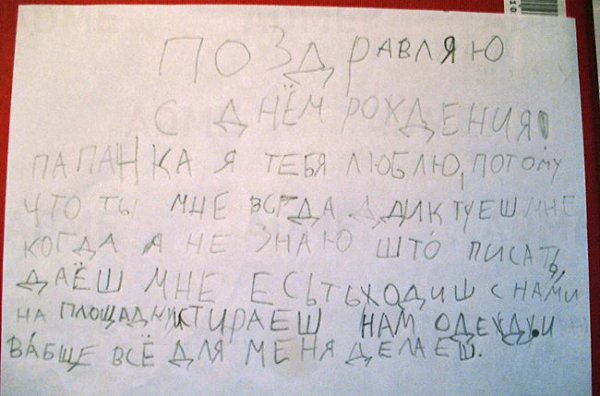 ПОЗДРАВЛЯЮ
С ДНЁМ РОЖДЕНИЯ!
ПАПАНКА Я ТЕБЯ ЛЮБЛЮ, ПОТОМУ
ЧТО ТЫ МНЕ ВСЕГДА ДИКТУЕШ МНЕ
КОГДА Я НЕ ЗНАЮ ШТО ПИСАТЬ,
ДАЁШ МНЕ ЕСЬТЬ ХОДИШ С НАМИ
НА ПЛОЩАДКУ СТИРАЕШ НАМ ОДЕЖДУ. И
ВАБЩЕ ВСЁ ДЛЯ МЕНЯ ДЕЛАЕШ.